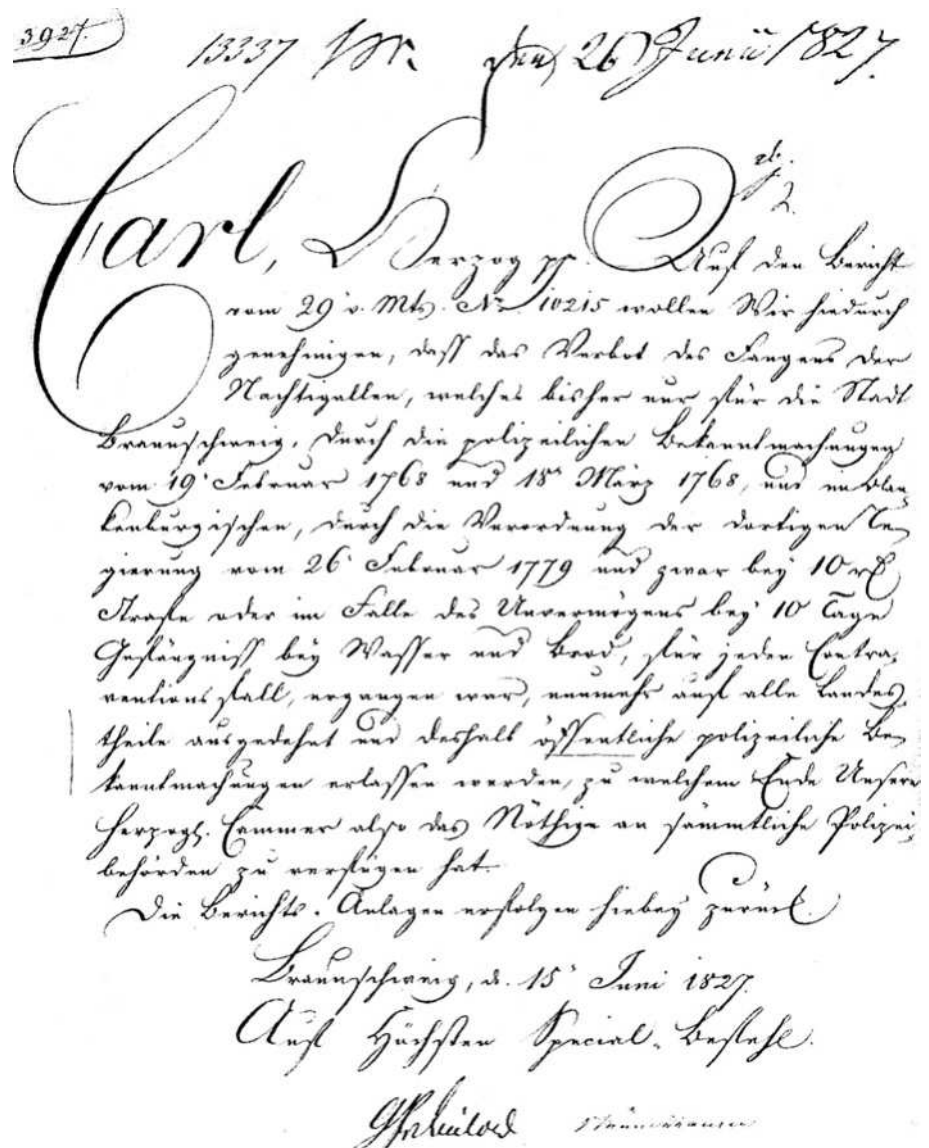 3927.
13337 den 26 Junii 1827.
Carl, Herzog pp. Auf den Bericht
vom 29 v. Mts. No. 10215 wollen Wir hiedurch
genehmigen, daß das Verbot des Fangens der
Nachtigallen, welches bisher nur für die Stadt
Braunschweig, durch die polizeilichen Bekanntmachungen
vom 19. Februar 1768 und 18n März 1768, und im Blan-
kenburgischen, durch die Verordnung der dortigen Re-
gierung vom 26. Februar 1779 und zwar bey 10 rt
Strafe oder im Falle des Unvermögens bey 10 Tage
Gefängniß bey Wasser und Brod, für jeden Contra-
ventionsfall, ergangen war, nunmehr auf alle Landes-
theile ausgedehnt und deshalb öffentliche polizeiliche Be-
kanntmachungen erlassen werden, zu welchem Ende Unsere
Herzogl. Cammer also das Nöthige an sämmtliche Polizei-
behörden zu verfügen hat.
Die Berichts-Anlagen erfolgen hiebey zurück.
Braunschweig, d. 15. Juni 1827.
Auf Höchsten Special-Befehl.